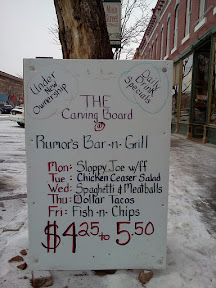 Under
New
Ownership
Daily
Drink
Specials
THE
Carving Board
@
Rumor's Bar-n-Grill
Mon: Sloppy Joe w/ff
Tue: Chicken Ceaser Salad
Wed: Spaghetti & Meatballs
Thu: Dollar Tacos
Fri: Fish-n-Chips
$4.25 to 5.50